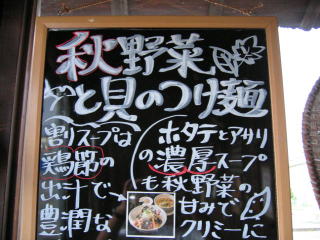 秋野菜
と貝のつけ麺
ホタテとアサリ
の濃厚スープ
も秋野菜の
甘みで
クリミーに
割スープは
鶏節の
出汁で
豊潤な